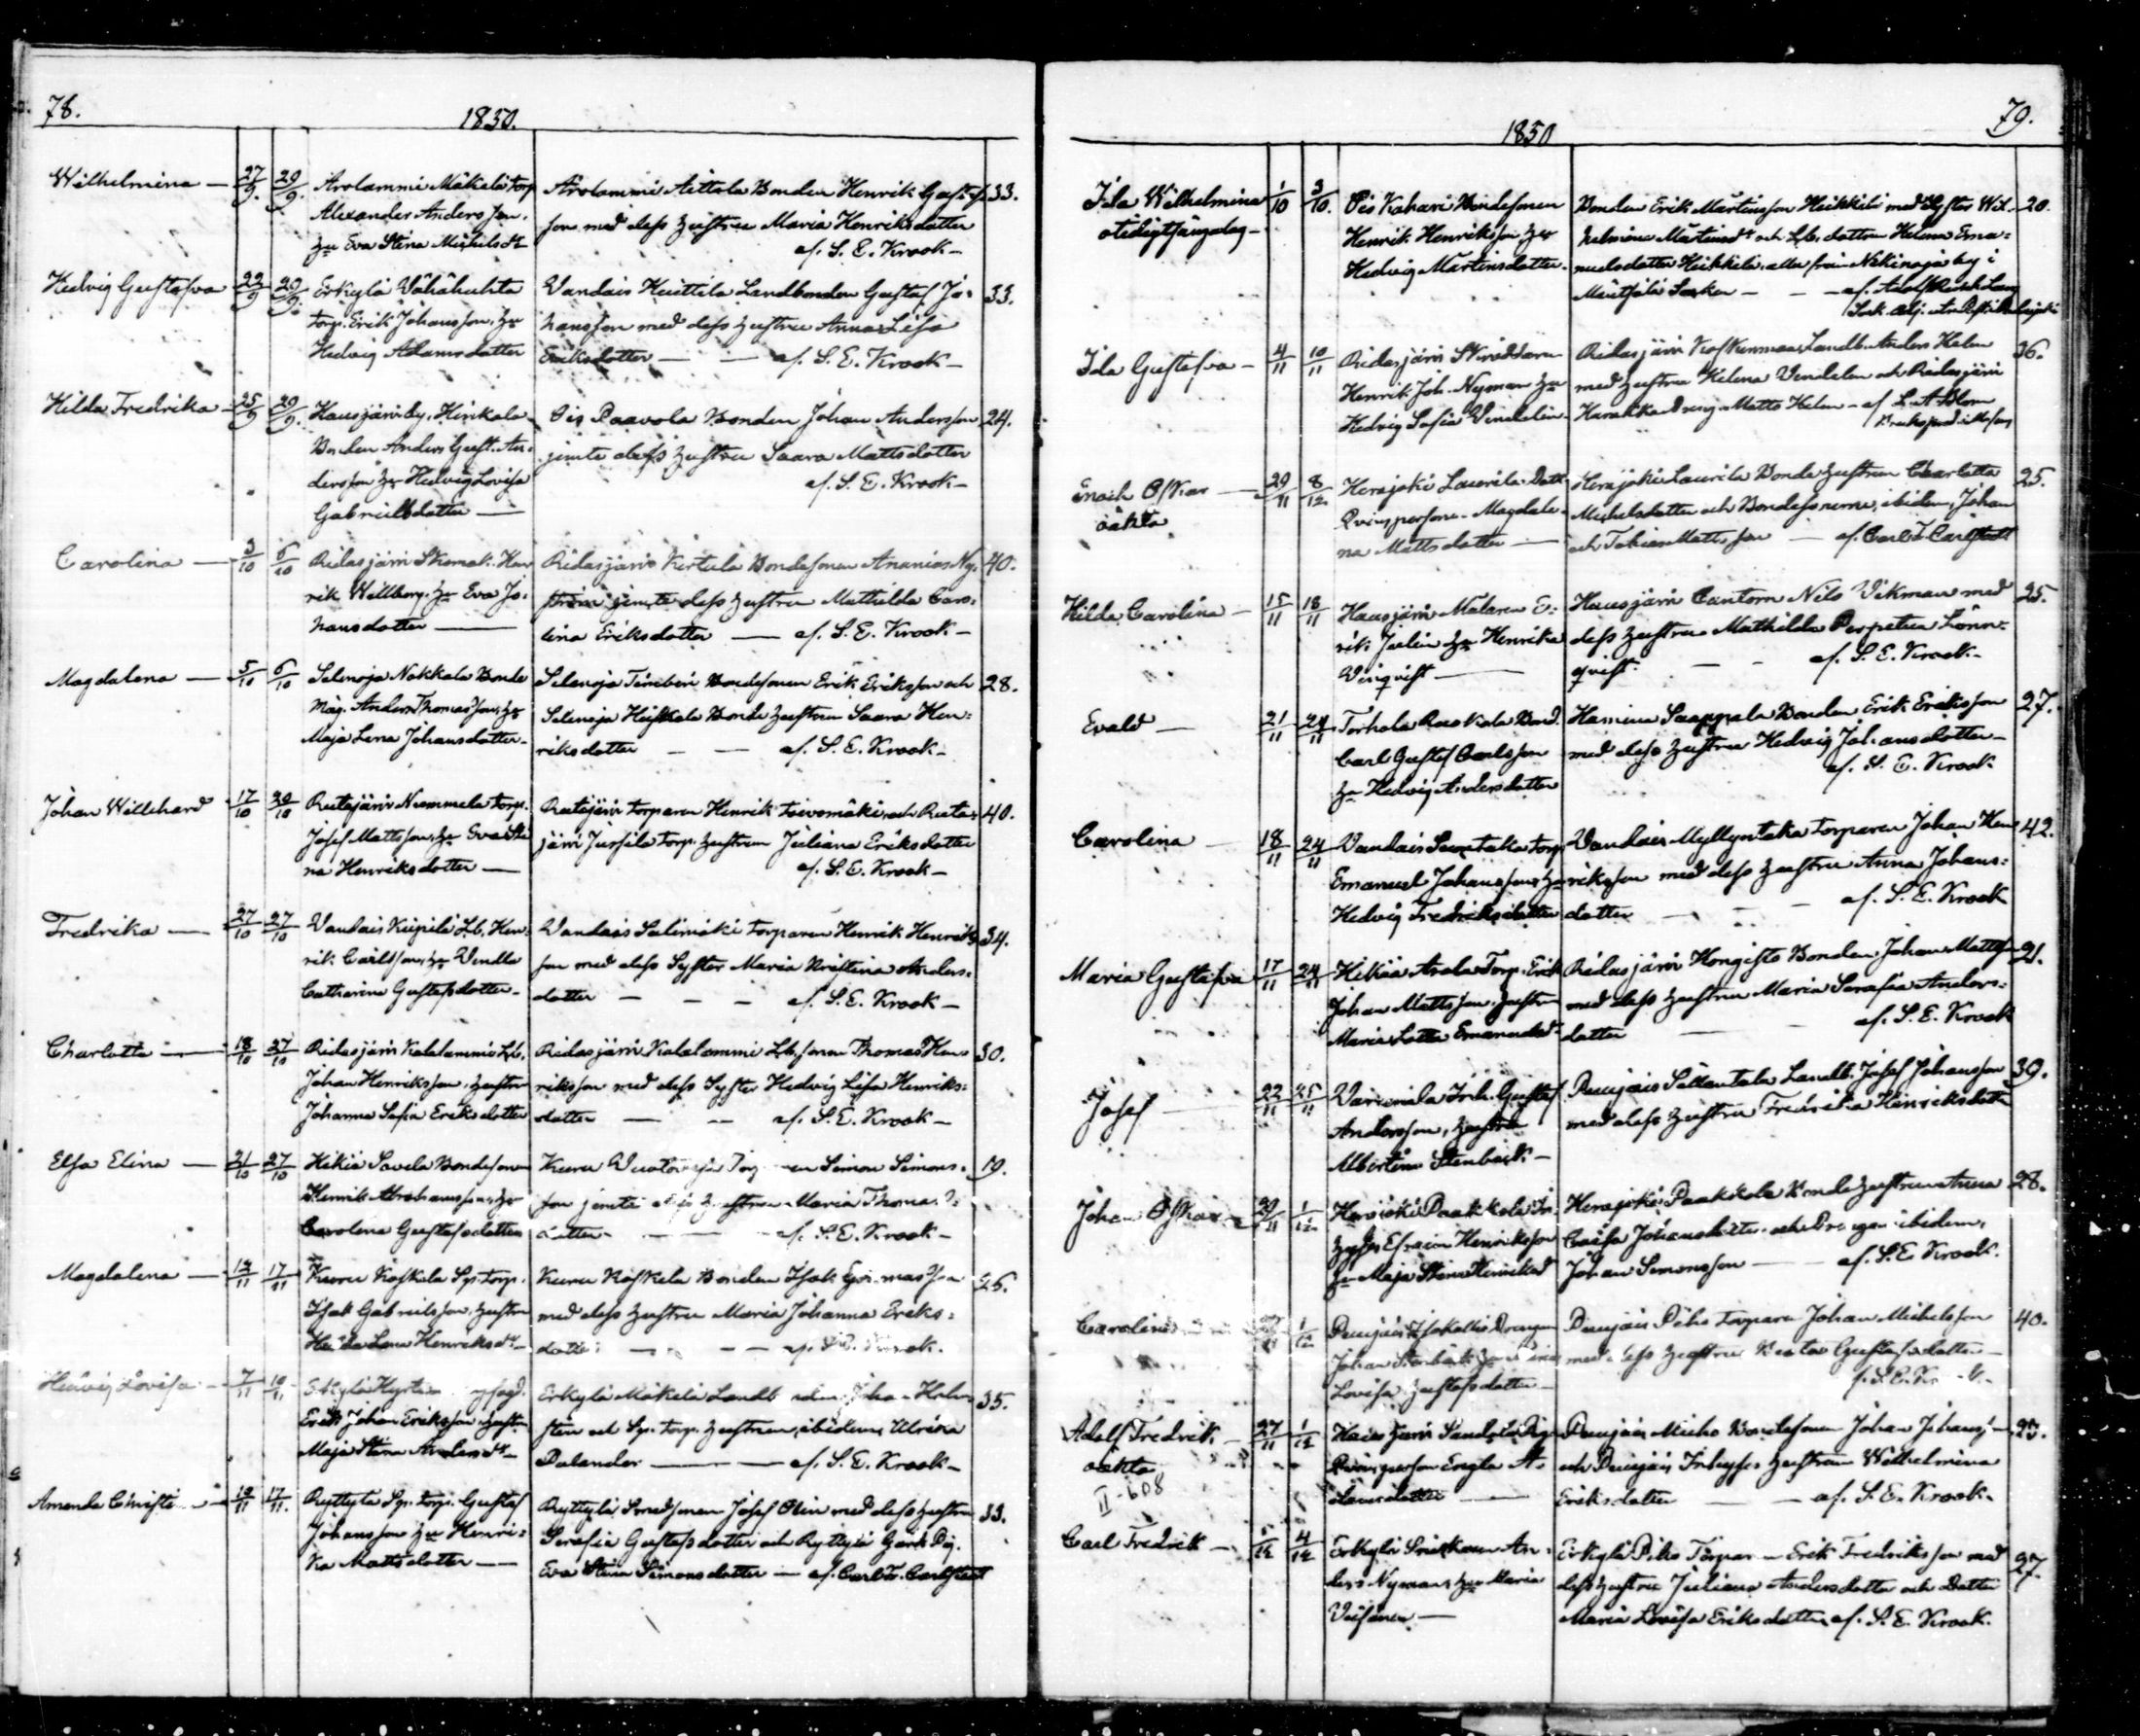 78.
1850.
Wilhelmina — 27/9. 29/9. Arolammi Mäkelä torp
Alexander Andersson.
hu Eva Stina Michelsdr
Arolammi Aittola Bonden Henrik Gustafs 33.
son med dess hustru Maria Henriksdotter
af. S. E. Krook —
Hedvig Gustafva 22/9 29/9. Erkylä Vähähuhta
torp. Erik Johansson, hu
Hedvig Adamsdotter
Vandais Huittila Landbonden Gustaf Jo- 33.
hansson med dess hustru Anna Lisa
Eriksdotter — — af. S. E. Krook —
Hilda Fredrika 25/9 29/9. Hausjärvi by, Hirikala
Bonden Anders Gust. An-
dersson hu Hedvig Lovisa
Gabrielsdotter —
Ois Paavola Bonden Johan Andersson 24.
jemte dess hustru Saara Mattsdotter
af. S. E. Krook —
Carolina — 3/10 6/10 Ridasjärvi Skomak. Hen
rik Willberg. hu Eva Jo-
hansdotter —
Ridasjärvi Kertula Bondesonen Ananias Ny- 40.
ström jemte dess hustru Mathilda Caro-
lina Eriksdotter — af. S. E. Krook —
Magdalena — 5/10 6/10 Selenoja Nokkala Bonde
måg. Anders Thomasson, hu
Maja Lena Johansdotter —
Selenoja Bondesonen Erik Eriksson och 28.
Selenoja Heikkala Bonde hustrun Saara Hen-
riksdotter — — af. S. E. Krook —
Johan Willehard 17/10 20/10 Rutajärvi Nummela torp.
Josef Mattsson, hu Eva Sti
na Henriksdotter —
Rutajärvi torparen Henrik Toivomäki och Ruta- 40.
järvi Jussila torp. hustrun Juliana Eriksdotter
af. S. E. Krook —
Fredrika — 27/10 27/10 Vandais Kiipilä Lb. Hen-
rik Carlsson, hu Vendla
Catharina Gustafsdotter —
Vandais Salimäki torparen Henrik Henriks 34.
son med dess Syster Maria Kristina Anders-
dotter — — — af. S. E. Krook —
Charlotta — 18/10 27/10 Ridasjärvi Kalalammi Lb.
Johan Henriksson, hustru
Johanna Sofia Eriksdotter
Ridasjärvi Kalalammi Lb. sonen Thomas Hen 30.
riksson med dess Syster Hedvig Lisa Henriks-
dotter — — af. S. E. Krook —
Elsa Elina — 21/10 27/10 Hikiä Savela Bondesonen
Henrik Abrahamsson, hu
Carolina Gustafsdotter
Kuru Simon Simons- 19.
son jemte dess hustru Maria Thomas-
dotter — af. S. E. Krook —
Magdalena — 14/11 17/11 Kuru Koskela Sp. torp.
Isak Gabrielsson, hustru
Lena Henriksdr —
Kuru Koskela Bonden Isak 26.
med dess hustru Maria Johanna Eriks-
dotter — — — af. S. E. Krook.
Hedvig Lovisa — 7/11 10/11 Erkylä
Erik Johan Eriksson, hustr
Maja Stina Andersdr —
Erkylä Mäkelä Landb Johan Holm- 35.
sten och Sp. torp. hustrun, ibidem, Ulrika
Palander — af. S. E. Krook —
Amanda Christi 12/11 17/11. Ryttylä Sp. torp. Gustaf
Johansson hu Henri-
ka Mattsdotter —
Ryttylä Smedsonen Josef Olin med dess hustru 33.
Serafia Gustafsdotter och Ryttylä Gårds Pig.
Eva Stina Simonsdotter — af. Carl Fr. Carlstedt
79.
1850
Ida Wilhelmina 1/10 3/10. Ois Kahari Bondesonen
otidigt sängelag —
Henrik Henriksson hu
Hedvig Martinsdotter.
Bonden Erik Martinsson Heikkilä med Syster Wil- 20.
helmina Martinsdr och Lb. dottren Helena Ema-
nuelsdotter Heikkilä, alla från Nikinoja by i
Mäntsälä Socken — — af. Adolf
Sock. Adj.
Ida Gustafva — 4/11 10/11 Ridasjärvi Skräddaren
Henrik Joh. Nyman hu
Hedvig Sofia Vendelin.
Ridasjärvi Koskenmaa Landb. Anders Helen 36.
med hustru Helena Vendelin och Ridasjärvi
Harakka Dreng Matts Helen — af L. A. Blom
Enoch Oskar — 29/11 8/12 Herajoki Laurila Dott
oäkta
Qvinsperson. Magdale-
na Mattsdotter —
Herajoki Laurila Bonde hustrun Charlotta 25.
Michelsdotter och Bondesönerne, ibidem, Johan
och Tobias Mattsson — af. Carl F. Carlstedt
Hilda Carolina — 15/11 18/11 Hausjärvi Målaren E-
rik Julin hu Henrika
Vinqvist —
Hausjärvi Cantorn Nils Vikman med 25.
dess hustru Mathilda Perpetua Lönn-
qvist. — — af. S. E. Krook —
Evald — 21/11 24/11 Torhola Raskala Bond.
Carl Gustaf Carlsson
hu Hedvig Andersdotter
Hamina Saappala Bonden Erik Eriksson 27.
med dess hustru Hedvig Johansdotter —
af. S. E. Krook
Carolina — 18/11 24/11 Vandais torp
Emanuel Johansson, hu
Hedvig Fredriksdotter
Vandais Myllyntaka torparen Johan Hen 42.
riksson med dess hustru Anna Johans-
dotter — — — af. S. E. Krook
Maria Gustafva 17/11 24/11 Hikiä Arola Torp. Erik
Johan Mattsson, hustru
Maria Lotta Emanuelsdr
Ridasjärvi Hongisto Bonden Johan Mattss 21.
med dess hustru Maria Serafia Anders-
dotter — — af. S. E. Krook
Josef 22/11 25/11 Inh. Gustaf
Andersson, hustru
Albertina Stenbäck —
Puujais Sällantala Landb. Josef Johansson 39.
med dess hustru Fredrika Henriksdott
Johan Oskar 29/11 1/12 Herajoki Paakkola In-
hyses Efraim Henriksson
hu Maja Stina Henriksd
Herajoki Paakkola Bonde hustrun Anna 28.
Caisa Johansdotter och Drengen ibidem,
Johan Simonsson — af. S. E. Krook.
Carolina 1/12 Puujais Isokallio Drengen
Johan Stenbäck hu
Lovisa Gustafsdotter —
Puujais Piho torparen Johan Michelsson 40.
med dess hustru Beata Gustafsdotter —
Adolf Fredrik. — 27/11 1/12 Hausjärvi Sandola Pig
oäkta
II-608
Qvinsperson Engla A-
damsdotter —
Puujais Micho Bondesonen Johan Johans
och Puujais Inhyses hustrun Wilhelmina
Eriksdotter — — af. S. E. Krook.
Carl Fredrik — 1/12 4/12 Erkylä Snickaren An-
ders Nyman, hu Maria
Väisänen —
Erkylä Piho Torparen Erik Fredriksson med 27.
dess hustru Juliana Andersdotter och Dotter
Maria Lovisa Eriksdotter, af. S. E. Krook.